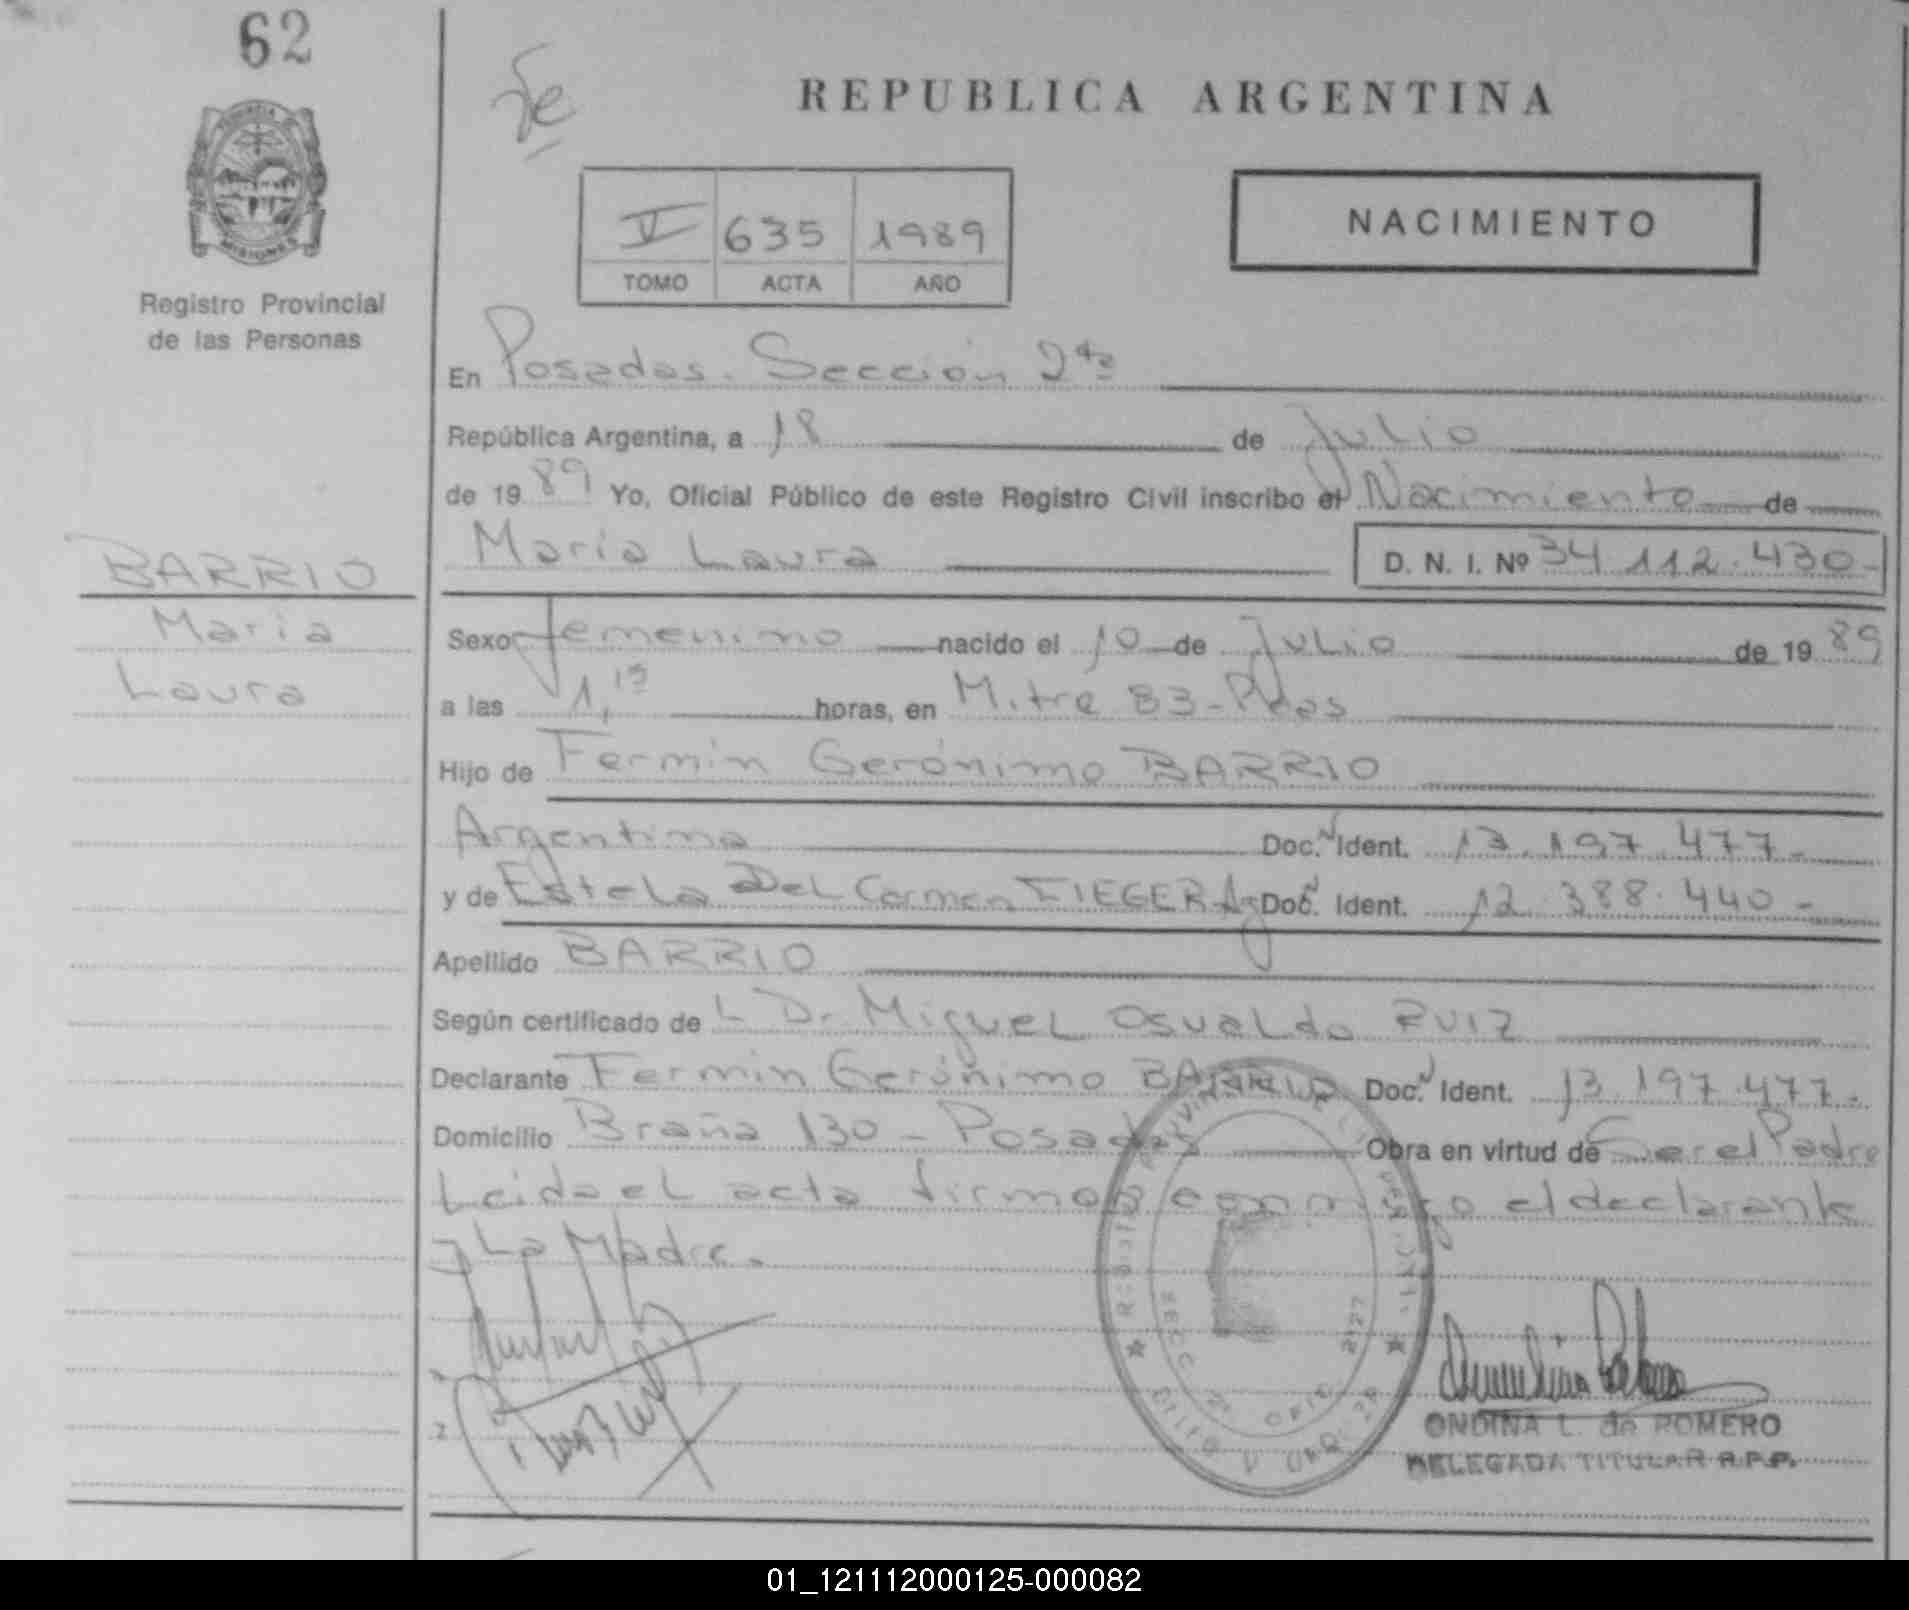 62
Fe
REPUBLICA ARGENTINA
V 635 1989
TOMO ACTA AÑO
NACIMIENTO
MISIONES
Registro Provincial
de las Personas
En Posadas. Sección 2da
República Argentina, a 18 de Julio
de 1989 Yo, Oficial Público de este Registro Civil inscribo el Nacimiento de
María Laura D. N. I. Nº 34.112.430-
BARRIO
María
Laura
Sexo femenino nacido el 10 de Julio de 1989
a las 1,15 horas, en Mitre 83-Pdas
Hijo de Fermín Gerónimo BARRIO
Argentino Doc. Ident. 13.197.477-
y de Estela Del Carmen FIEGER Arg Doc. Ident. 12.388.440-
Apellido BARRIO
Según certificado de L Dr Miguel Osvaldo RUIZ
Declarante Fermín Gerónimo BARRIO Doc. Ident. 13.197.477-
Domicilio Braña 130 - Posadas Obra en virtud de Ser el Padre
Leida el acta firman conmigo el declarante
y La Madre.
SECC 2ª OFIC 2127
ONDINA L. de ROMERO
DELEGADA TITULAR R.P.P.
01_121112000125-000082